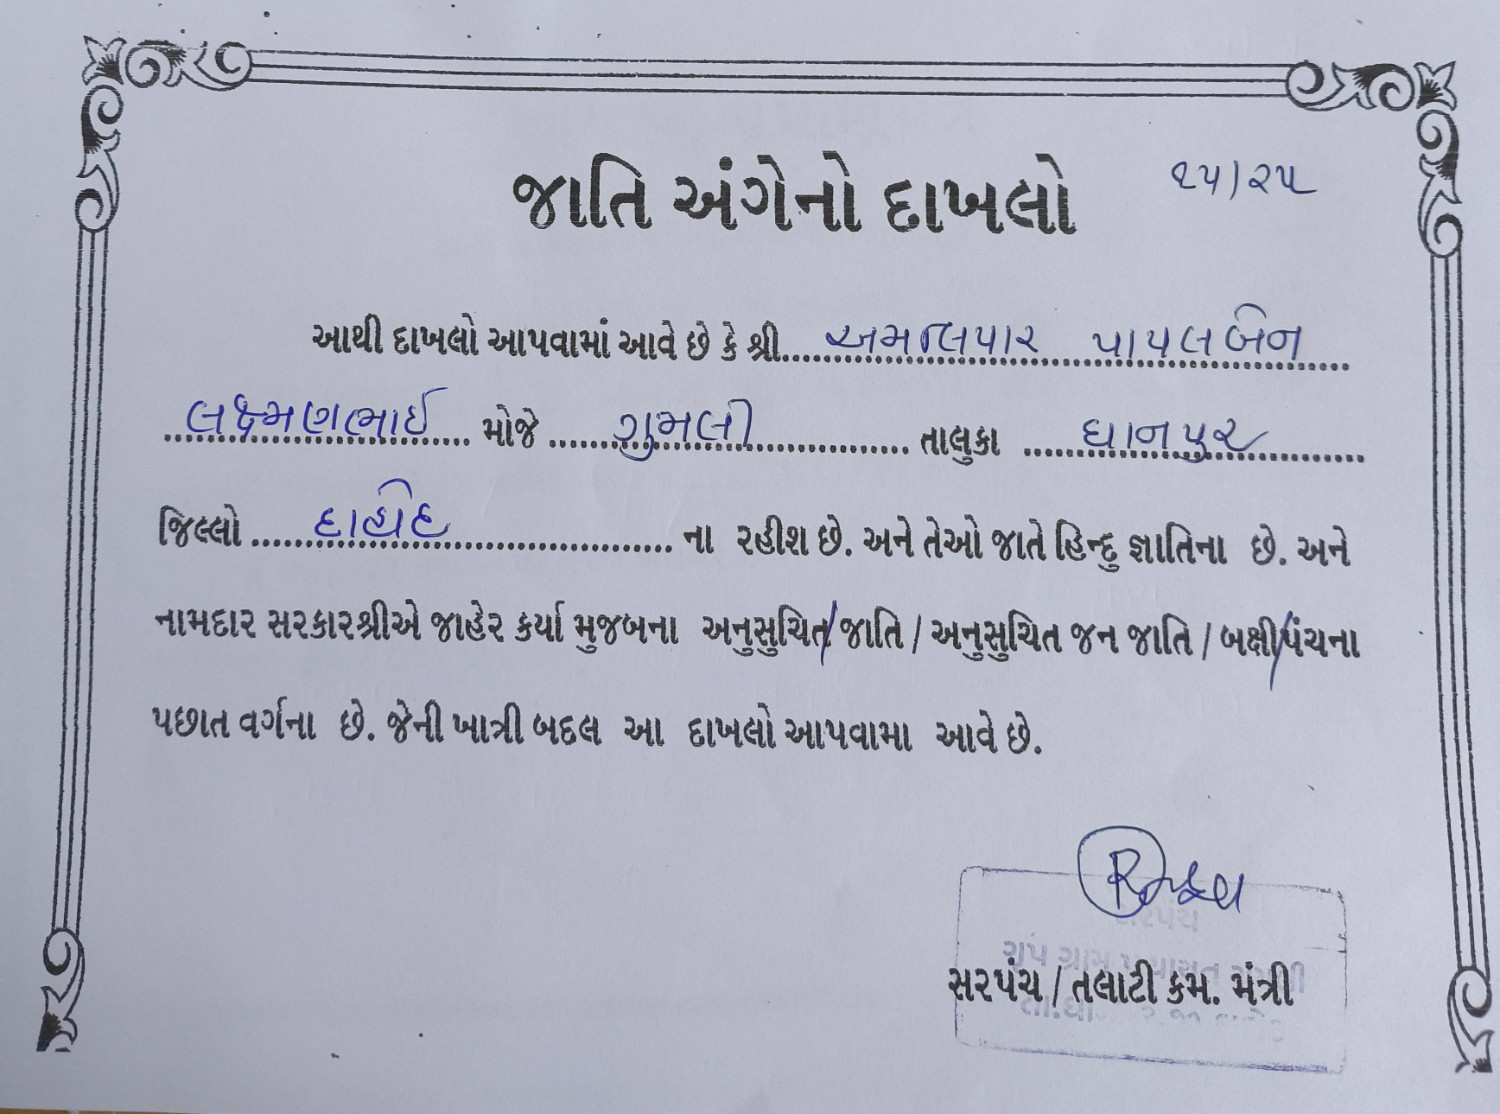 જાતિ અંગેનો દાખલો
૨૫/૨૫
આથી દાખલો આપવામાં આવે છે કે શ્રી અમલિયાર પાયલબેન
લક્ષ્મણભાઈ મોજે ગુમલી તાલુકા ધાનપુર
જિલ્લો દાહોદ ના રહીશ છે. અને તેઓ જાતે હિન્દુ જ્ઞાતિના છે. અને
નામદાર સરકારશ્રીએ જાહેર કર્યા મુજબના અનુસુચિત/જાતિ / અનુસુચિત જન જાતિ / બક્ષી/પંચના
પછાત વર્ગના છે. જેની ખાત્રી બદલ આ દાખલો આપવામા આવે છે.
સરપંચ
ગૃપ ગ્રામ પંચાયત
સરપંચ / તલાટી કમ. મંત્રી